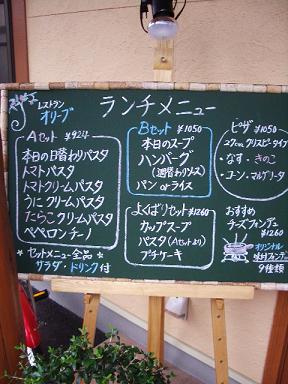 レストラン
オリーブ
ランチメニュー
Aセット ¥924
本日の日替わりパスタ
トマトパスタ
トマトクリームパスタ
うにクリームパスタ
たらこクリームパスタ
ペペロンチーノ
*セットメニュー全品*
サラダ・ドリンク付
Bセット ¥1050
本日のスープ
ハンバーグ
(週替わりソース)
パン or ライス
よくばりセット ¥1260
カップスープ
パスタ(Aセットより)
プチケーキ
ピザ ¥1050
27cm クリスピータイプ
・なす・きのこ
・コーン・マルゲリータ
おすすめ
チーズフォンデュ
¥1260
オリジナル
9種類